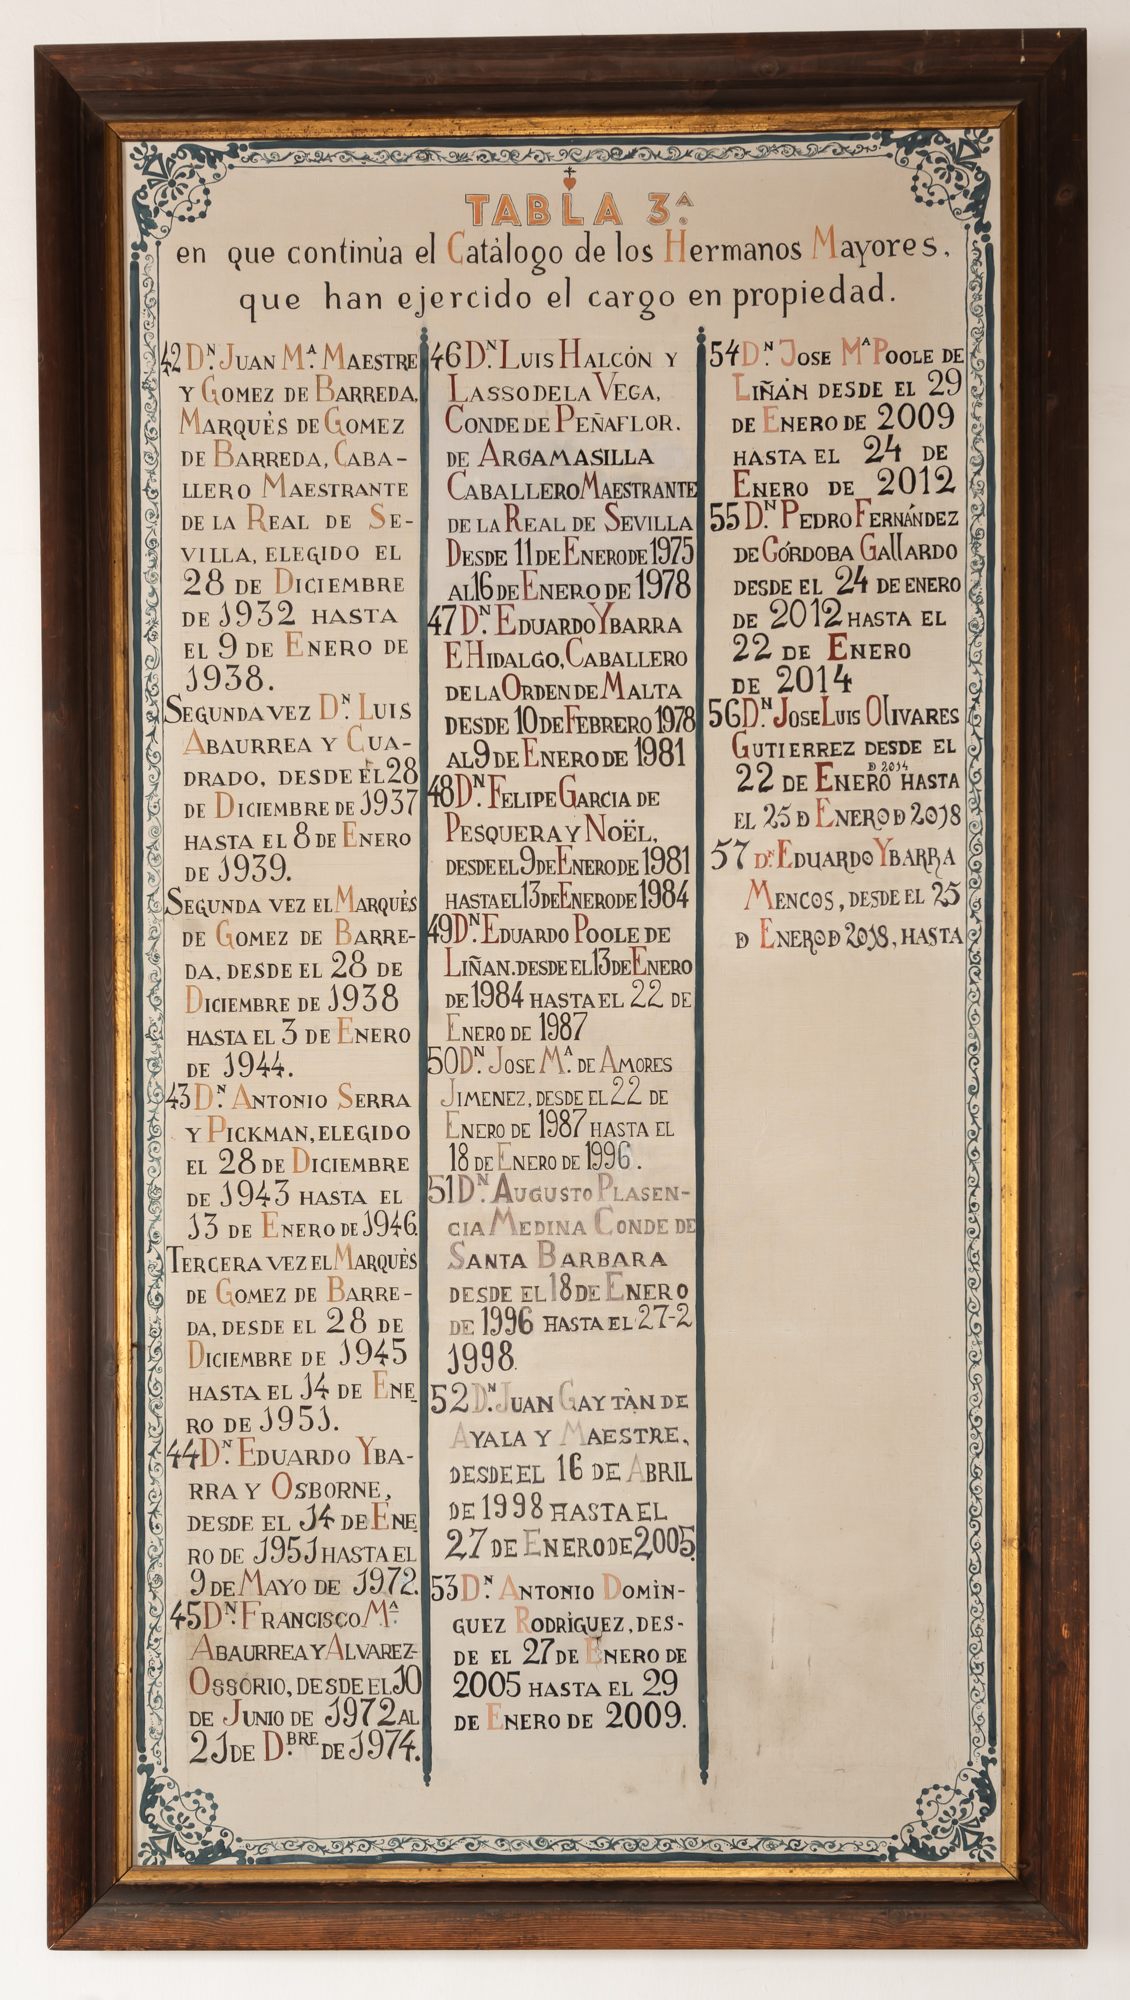 TABLA 3ª
en que continúa el Catálogo de los Hermanos Mayores,
que han ejercido el cargo en propiedad.
42 DN. JUAN Mª. MAESTRE
Y GOMEZ DE BARREDA,
MARQUÈS DE GOMEZ
DE BARREDA, CABA-
LLERO MAESTRANTE
DE LA REAL DE SE-
VILLA, ELEGIDO EL
28 DE DICIEMBRE
DE 1932 HASTA
EL 9 DE ENERO DE
1938.
SEGUNDA VEZ DN. LUIS
ABAURREA Y CUA-
DRADO, DESDE EL 28
DE DICIEMBRE DE 1937
HASTA EL 8 DE ENERO
DE 1939.
SEGUNDA VEZ EL MARQUÈS
DE GOMEZ DE BARRE-
DA, DESDE EL 28 DE
DICIEMBRE DE 1938
HASTA EL 3 DE ENERO
DE 1944.
43 DN. ANTONIO SERRA
Y PICKMAN, ELEGIDO
EL 28 DE DICIEMBRE
DE 1943 HASTA EL
13 DE ENERO DE 1946.
TERCERA VEZ EL MARQUÈS
DE GOMEZ DE BARRE-
DA, DESDE EL 28 DE
DICIEMBRE DE 1945
HASTA EL 14 DE ENE-
RO DE 1951.
44 DN. EDUARDO YBA-
RRA Y OSBORNE,
DESDE EL 14 DE ENE
RO DE 1951 HASTA EL
9 DE MAYO DE 1972.
45 DN. FRANCISCO Mª
ABAURREA Y ALVAREZ-
OSSORIO, DESDE EL 10
DE JUNIO DE 1972 AL
21 DE D.BRE DE 1974.
46 DN. LUIS HALCÓN Y
LASSO DE LA VEGA,
CONDE DE PEÑAFLOR.
DE ARGAMASILLA
CABALLERO MAESTRANTE
DE LA REAL DE SEVILLA
DESDE 11 DE ENERO DE 1975
AL 16 DE ENERO DE 1978
47 DN. EDUARDO YBARRA
E HIDALGO, CABALLERO
DE LA ORDEN DE MALTA
DESDE 10 DE FEBRERO 1978
AL 9 DE ENERO DE 1981
48 DN. FELIPE GARCIA DE
PESQUERA Y NOËL,
DESDE EL 9 DE ENERO DE 1981
HASTA EL 13 DE ENERO DE 1984
49 DN. EDUARDO POOLE DE
LIÑAN. DESDE EL 13 DE ENERO
DE 1984 HASTA EL 22 DE
ENERO DE 1987
50 DN. JOSE Mª. DE AMORES
JIMENEZ, DESDE EL 22 DE
ENERO DE 1987 HASTA EL
18 DE ENERO DE 1996.
51 DN. AUGUSTO PLASEN-
CIA MEDINA CONDE DE
SANTA BARBARA
DESDE EL 18 DE ENERO
DE 1996 HASTA EL 27-2
1998.
52 DN. JUAN GAYTÀN DE
AYALA Y MAESTRE,
DESDE EL 16 DE ABRIL
DE 1998 HASTA EL
27 DE ENERO DE 2005.
53 DN. ANTONIO DOMÌN-
GUEZ RODRÌGUEZ, DES-
DE EL 27 DE ENERO DE
2005 HASTA EL 29
DE ENERO DE 2009.
54 DN. JOSE Mª POOLE DE
LIÑÁN DESDE EL 29
DE ENERO DE 2009
HASTA EL 24 DE
ENERO DE 2012
55 DN. PEDRO FERNÁNDEZ
DE CÓRDOBA GALLARDO
DESDE EL 24 DE ENERO
DE 2012 HASTA EL
22 DE ENERO
DE 2014
56 DN. JOSE LUIS OLIVARES
GUTIERREZ DESDE EL
22 DE ENERO D 2014 HASTA
EL 25 D ENERO D 2018
57 DN. EDUARDO YBARRA
MENCOS, DESDE EL 25
D ENERO D 2018, HASTA